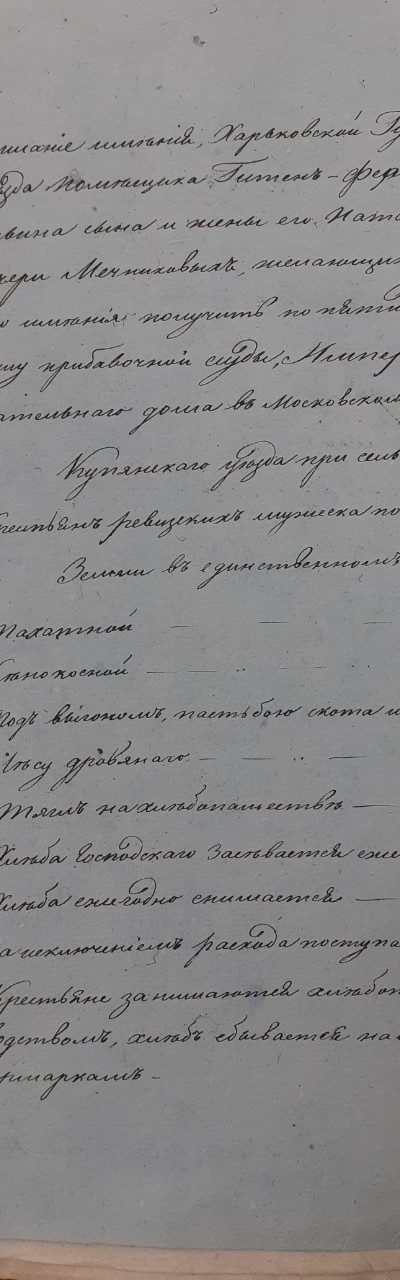 писаніе имѣнія, Харьковской Гу
ѣзда помѣщика
вина сына и жены его Ната
чери Мечниковыхъ, желающих
о имѣнія получить по пяти
шу прибавочной ссуды, Импер
ательнаго дома въ Московском
Купянскаго уѣзда при сель
крестьянъ ревизскихъ мужеска по
Земли въ единственномъ
Пахатной — — —
Сѣнокосной — — —
Подъ выгономъ, пастьбою скота и
Лѣсу дровянаго — — —
Тяглъ на хлѣбопашествѣ —
Хлѣба Господскаго засѣвается еже
Хлѣба ежегодно снимается —
за исключеніемъ расхода поступа
Крестьяне занимаются хлѣбоп
одствомъ, хлѣбъ сбывается на
ярмаркамъ –